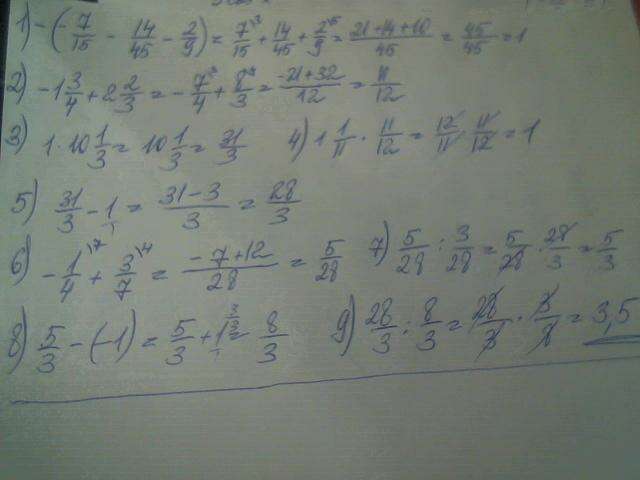 1) -(-7/15 - 14/45 - 2/9) = 7^3/15 + 14/45 + 2^5/9 = (21+14+10)/45 = 45/45 = 1
2) -1 3/4 + 2 2/3 = -7^3/4 + 8^4/3 = (-21+32)/12 = 11/12
3) 1 · 10 1/3 = 10 1/3 = 31/3   4) 1 1/11 · 11/12 = 12/11 · 11/12 = 1
5) 31/3 - 1/1 = (31-3)/3 = 28/3
6) -1^7/4 + 3^4/7 = (-7+12)/28 = 5/28   7) 5/28 : 3/28 = 5/28 · 28/3 = 5/3
8) 5/3 - (-1) = 5/3 + 1^3/1 = 8/3   9) 28/3 : 8/3 = 28/3 · 3/8 = 3,5